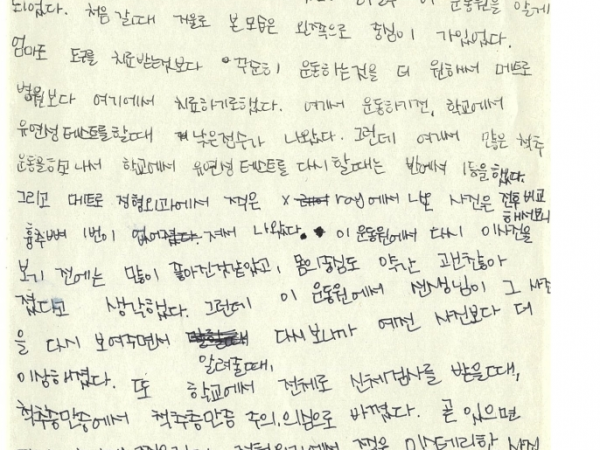 되었다. 처음 갈때 거울로 본모습은 왼쪽으로 중심이 가있었다.
엄마도 도수 치료받는것보다 꾸준히 운동하는것을 더 원해서 메트로
병원보다 여기에서 치료하기로했다. 여기서 운동하기전, 학교에서
유연성 테스트를할때 낮은점수가 나왔다. 그런데 여기서 많은 척추
운동을하고 나서 학교에서 유연성 테스트를 다시 할때는 반에서 1등을 했다.
그리고 메트로 정형외과에서 찍은 X ray에서 나온 사진은 전후비교 해서보니
흉추뼈 1번이 없어졌다. 져서 나왔다. 이 운동원에서 다시 이사진을
보기 전에는 많이 좋아진것같았고, 몸의 중심도 약간 괜찮아
졌다고 생각했다. 그런데 이 운동원에서 선생님이 그 사진
을 다시 보여주면서 알려줄때, 다시보니까 예전 사진보다 더
이상해졌다. 또 학교에서 전체로 신체검사를 받을때,
척추측만증에서 척추측만증 주의, 의심으로 바꼈다. 곧 있으면
찍은